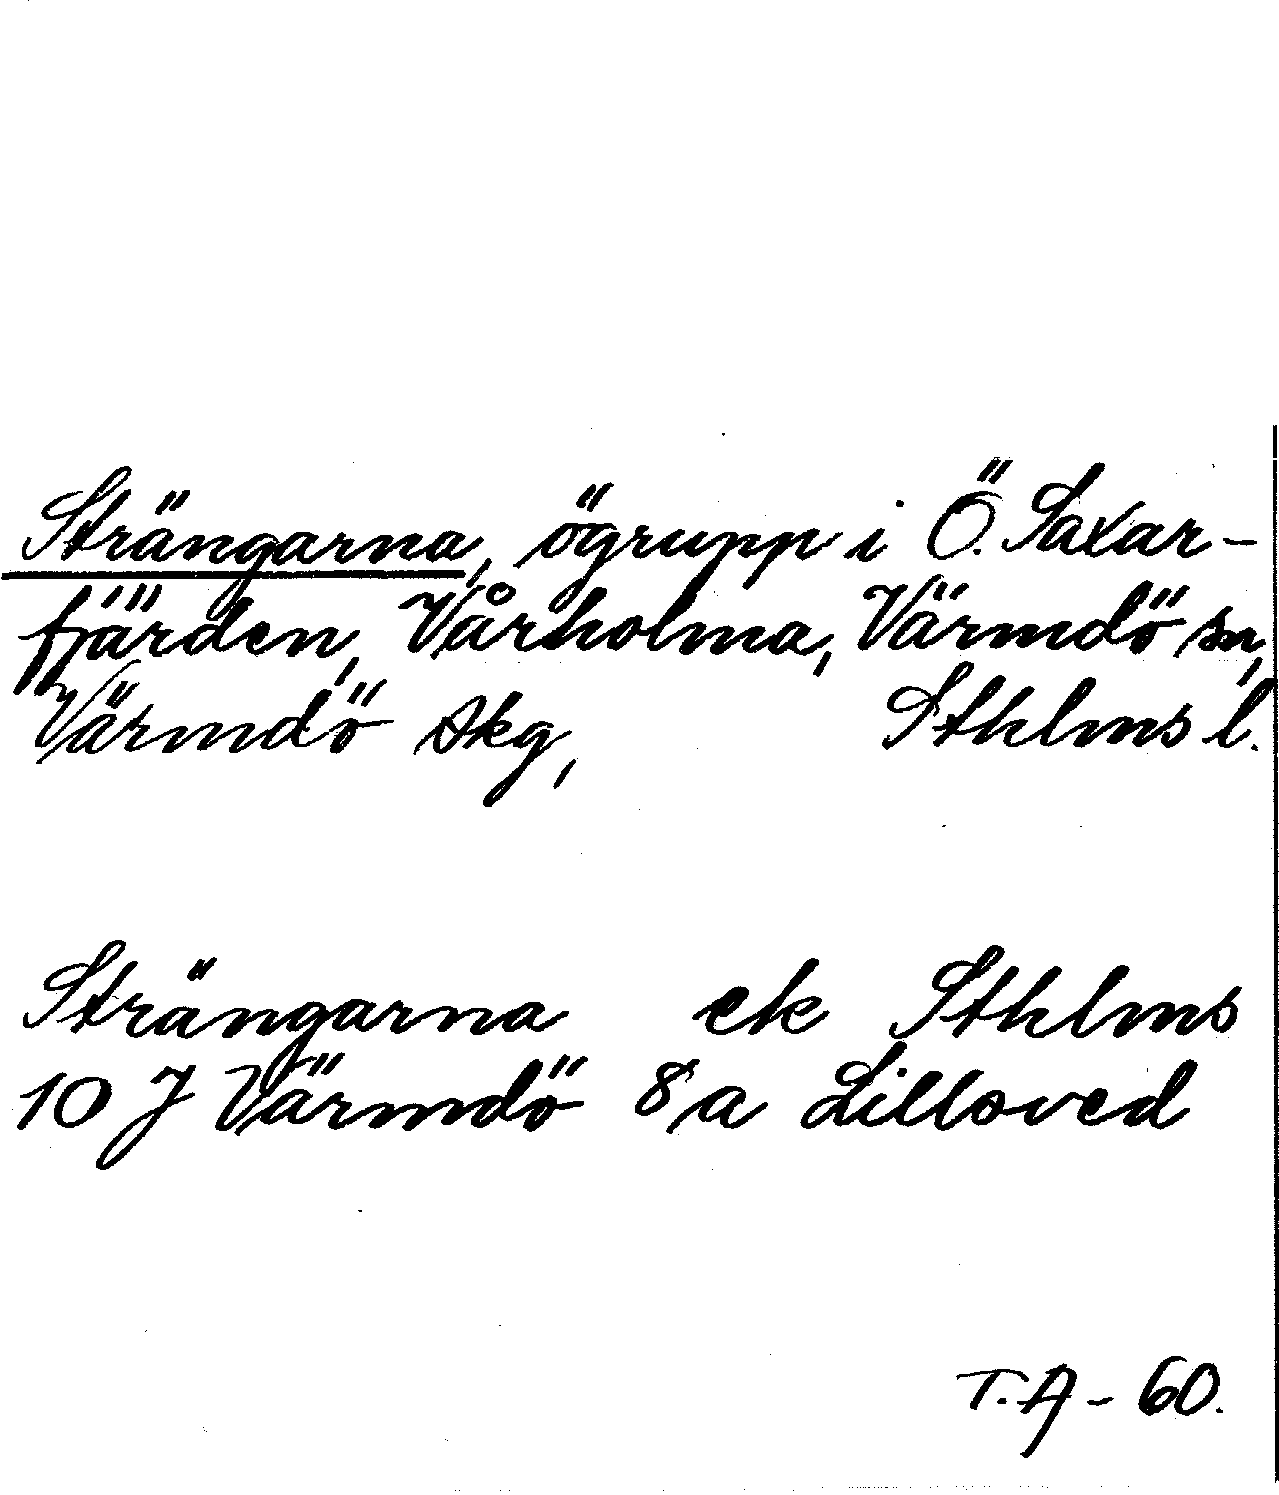 Strängarna, ögrupp i Ö. Saxar-
fjärden, Vårholma, Värmdö sn,
Värmdö skg, Sthlms l.
Strängarna ek Sthlms
10 J Värmdö 8 a Lillsved
T.A - 60.